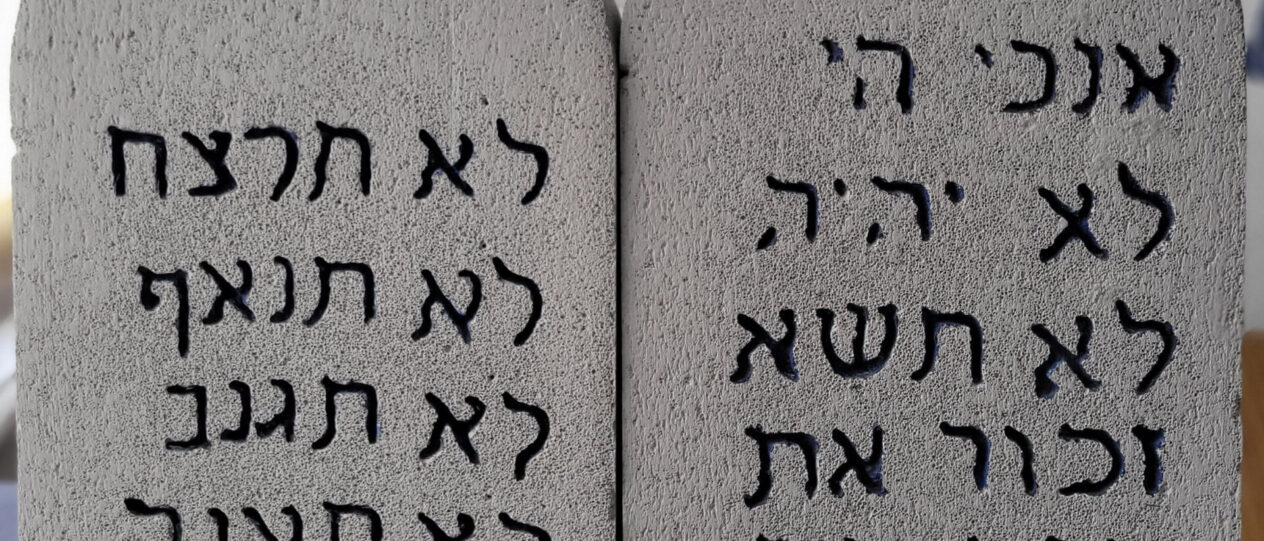 אנכי הי
לא יהיה
לא תשא
זכור את
לא תרצח
לא תנאף
לא תגנב